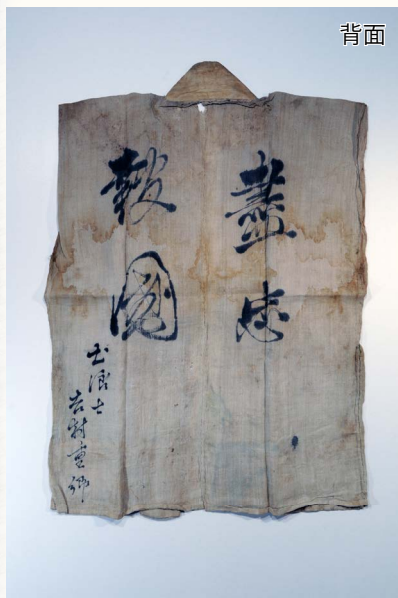 背面
盡忠
報國
土浪士
吉村重郷